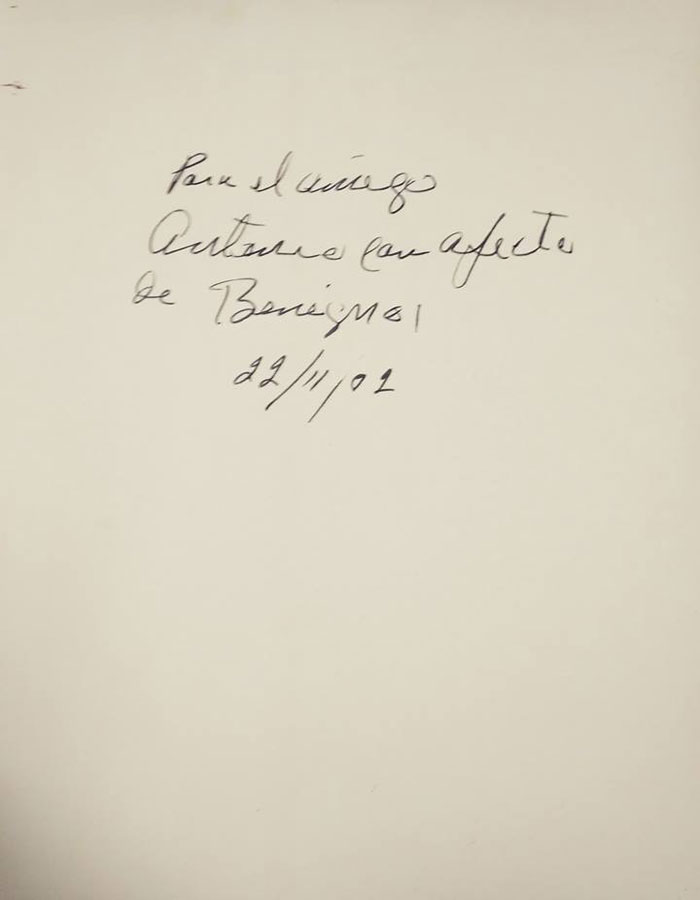 Para el amigo
Antonio con afecto
de Benigno
22/11/02